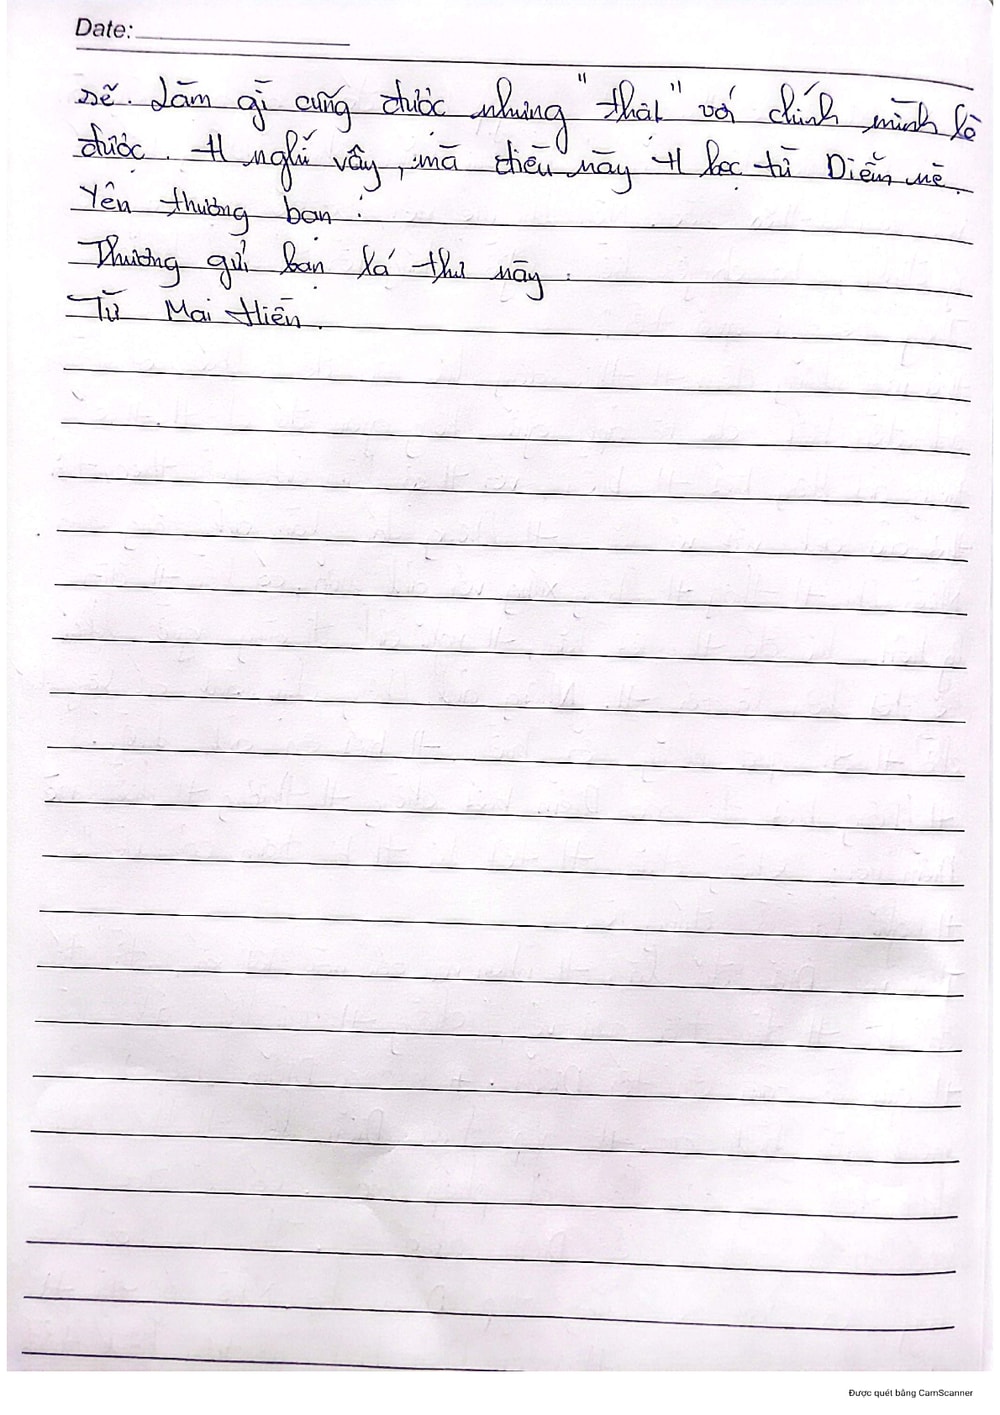 Date:
sẽ. Làm gì cũng được nhưng "thật" với chính mình là
được. H nghĩ vậy, mà điều này H học từ Diễm nè.
Yên thương bạn.
Thương gửi bạn lá thư này.
Từ Mai Hiền.
Được quét bằng CamScanner